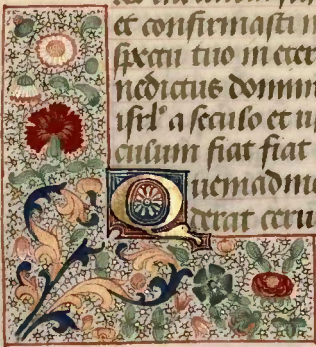 et confirmasti m
spectu tuo in eter
nedictus domin
isrl̄ a seculo et us
culum fiat fiat
Quemadmo
derat ceru